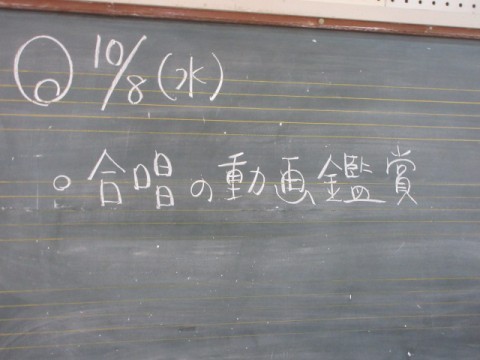 10/8(水)
○合唱の動画鑑賞